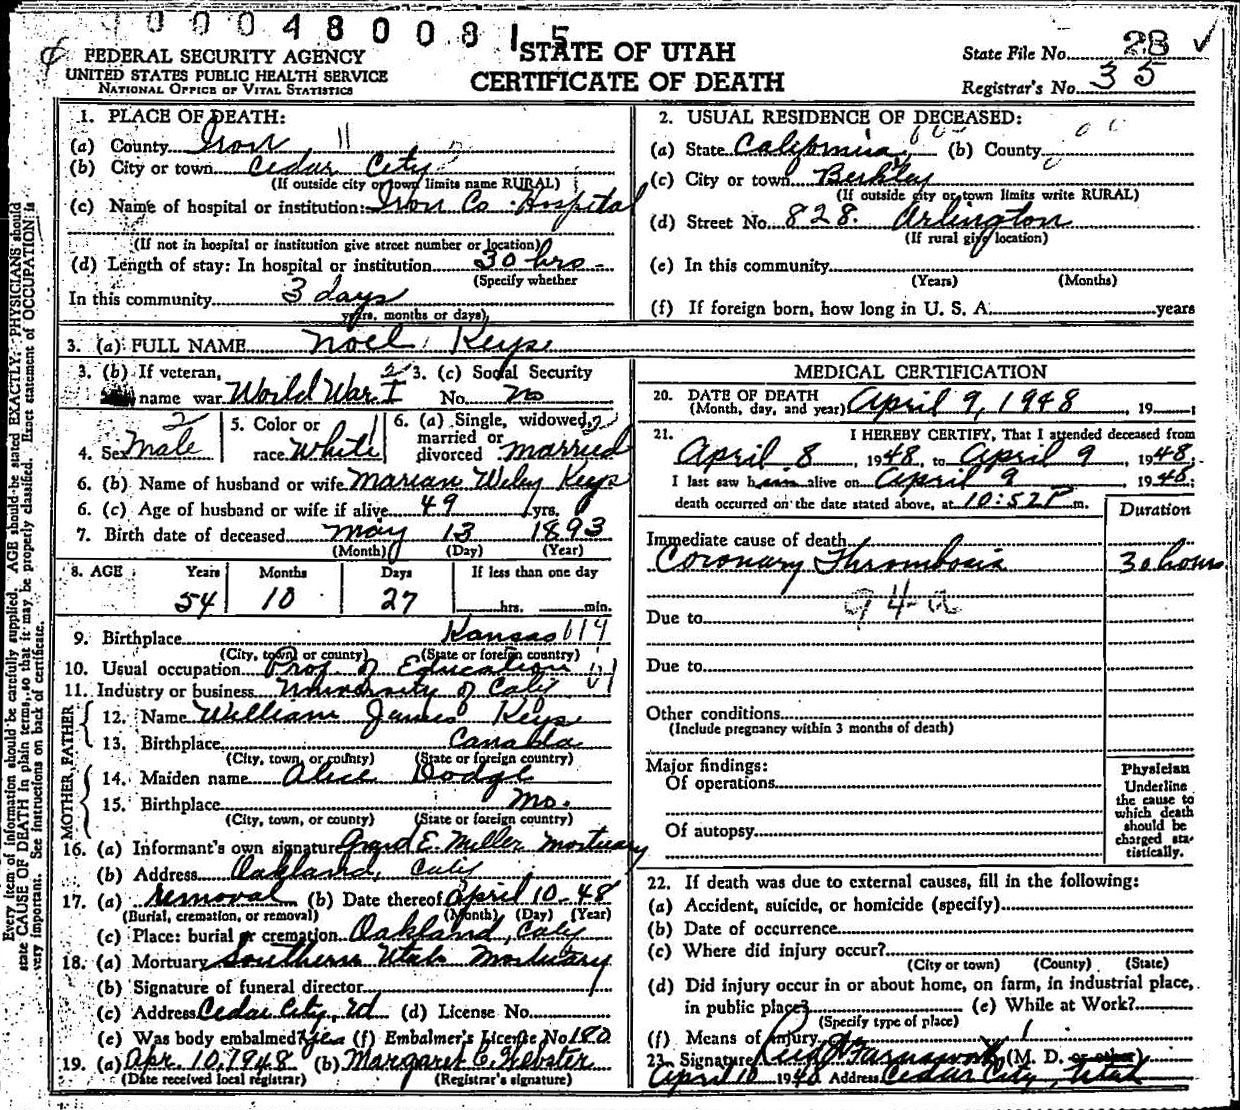 0004800815
FEDERAL SECURITY AGENCY
UNITED STATES PUBLIC HEALTH SERVICE
NATIONAL OFFICE OF VITAL STATISTICS
STATE OF UTAH
CERTIFICATE OF DEATH
State File No. 28 ✓
Registrar's No. 35
Every item of information should be carefully supplied. AGE should be stated EXACTLY. PHYSICIANS should
state CAUSE OF DEATH in plain terms, so that it may be properly classified. Exact statement of OCCUPATION is
very important. See instructions on back of certificate.
1. PLACE OF DEATH:
(a) County Iron 11
(b) City or town Cedar City
(If outside city or town limits name RURAL)
(c) Name of hospital or institution: Iron Co. Hospital
(If not in hospital or institution give street number or location)
(d) Length of stay: In hospital or institution 30 hrs.
(Specify whether
In this community 3 days
yrs. months or days)
2. USUAL RESIDENCE OF DECEASED:
(a) State California (b) County
(c) City or town Berkley
(If outside city or town limits write RURAL)
(d) Street No. 828. Arlington
(If rural give location)
(e) In this community
(Years) (Months)
(f) If foreign born, how long in U. S. A. years
3. (a) FULL NAME Noel Keys
3. (b) If veteran,
name war World War I
3. (c) Social Security
No. no
4. Sex Male
5. Color or
race White
6. (a) Single, widowed,
married or
divorced married
6. (b) Name of husband or wife Marian Wiley Keys
6. (c) Age of husband or wife if alive 49 yrs.
7. Birth date of deceased May 13 1893
(Month) (Day) (Year)
8. AGE Years Months Days If less than one day
54 10 27 hrs. min.
9. Birthplace Kansas 614
(City, town or county) (State or foreign country)
10. Usual occupation Prof of Education
11. Industry or business University of Calif
FATHER
12. Name William James Keys
13. Birthplace Canada
(City, town, or county) (State or foreign country)
MOTHER
14. Maiden name Alice Dodge
15. Birthplace Mo.
(City, town, or county) (State or foreign country)
16. (a) Informant's own signature Grand E. Miller Mortuary
(b) Address Oakland, Calif
17. (a) removal (b) Date thereof April 10-48
(Burial, cremation, or removal) (Month) (Day) (Year)
(c) Place: burial or cremation Oakland, Calif
18. (a) Mortuary Southern Utah Mortuary
(b) Signature of funeral director
(c) Address Cedar City, Ut (d) License No.
(e) Was body embalmed yes (f) Embalmer's License No 180
19. (a) Apr. 10, 1948 (b) Margaret C. Webster
(Date received local registrar) (Registrar's signature)
MEDICAL CERTIFICATION
20. DATE OF DEATH
(Month, day, and year) April 9, 1948, 19
21. I HEREBY CERTIFY, That I attended deceased from
April 8, 1948, to April 9 1948.
I last saw him alive on April 9 1948;
death occurred on the date stated above, at 10:52P m.
Duration
Immediate cause of death
Coronary Thrombosis 30 hours
94-a
Due to
Due to
Other conditions
(Include pregnancy within 3 months of death)
Major findings:
Of operations
Of autopsy
Physician
Underline
the cause to
which death
should be
charged sta-
tistically.
22. If death was due to external causes, fill in the following:
(a) Accident, suicide, or homicide (specify)
(b) Date of occurrence
(c) Where did injury occur?
(City or town) (County) (State)
(d) Did injury occur in or about home, on farm, in industrial place,
in public place? (e) While at Work?
(Specify type of place)
(f) Means of injury
23. Signature Reid Farnsworth (M. D. or other)
April 10 1948 Address Cedar City, Utah